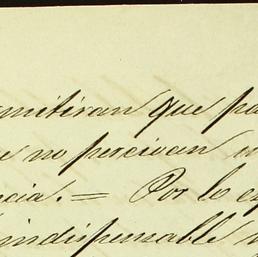 mitiran que pa
e no percivan u
cia. = Por lo e
indispensable